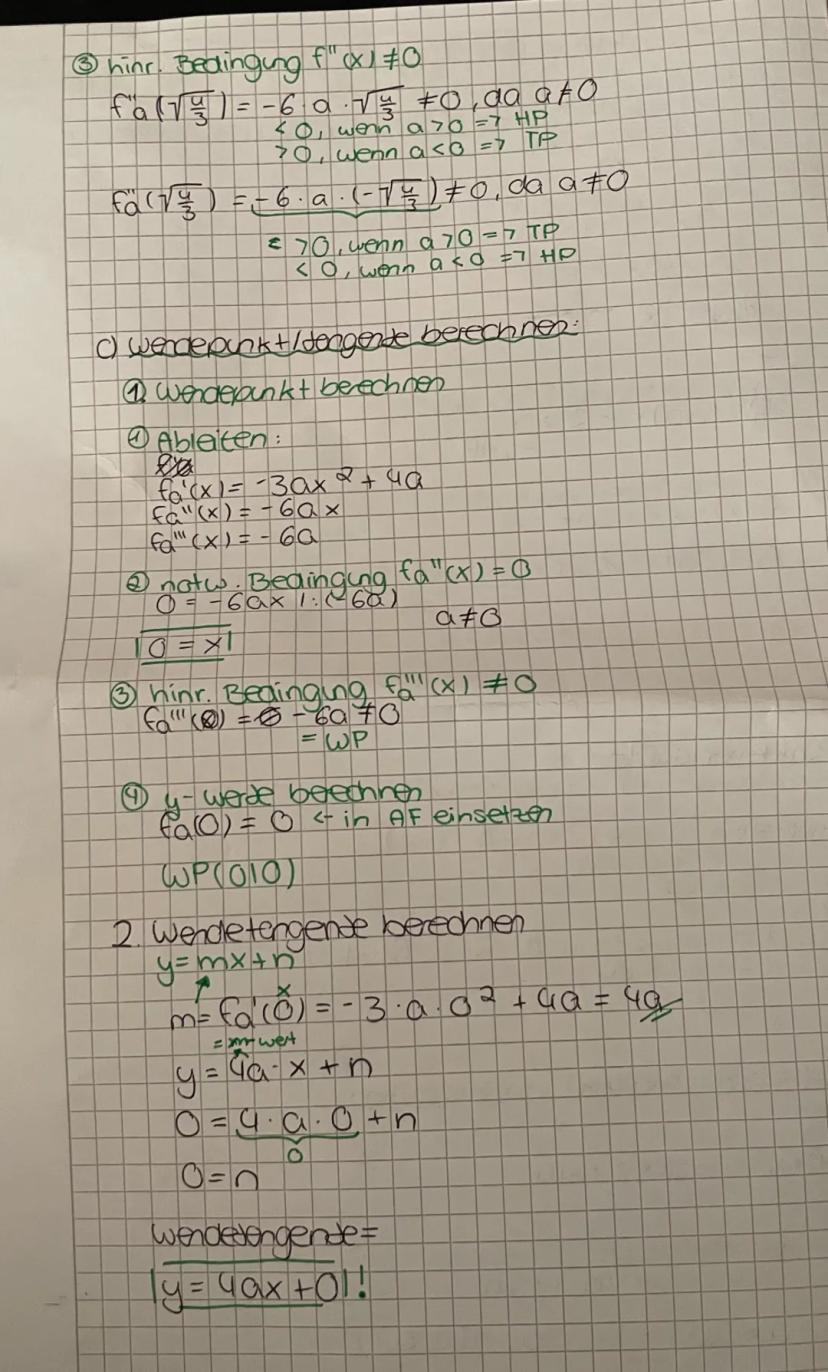 ③ hinr. Bedingung f''(x) ≠ 0
f''a(√4/3) = -6 a · √4/3 ≠ 0, da a ≠ 0
< 0, wenn a > 0 => HP
> 0, wenn a < 0 => TP
fa''(√4/3) = -6 · a · (-√4/3) ≠ 0, da a ≠ 0
> 0, wenn a > 0 => TP
< 0, wenn a < 0 => HP
c) Wendepunkt/tangente berechnen:
① Wendepunkt berechnen
① Ableiten:
fa'(x) = -3ax² + 4a
fa''(x) = -6ax
fa'''(x) = -6a
② notw. Bedingung fa''(x) = 0
0 = -6ax | : (-6a)
a ≠ 0
0 = x
③ hinr. Bedingung fa'''(x) ≠ 0
fa'''(0) = -6a ≠ 0
= WP
④ y-werte berechnen
fa(0) = 0 ← in AF einsetzen
WP(0|0)
2. Wendetengente berechnen
y = mx + n
x
m = fa'(0) = -3 · a · 0² + 4a = 4a
y = 4a · x + n
0 = 4 · a · 0 + n
0
0 = n
Wendetengente =
|y = 4ax + 0|!